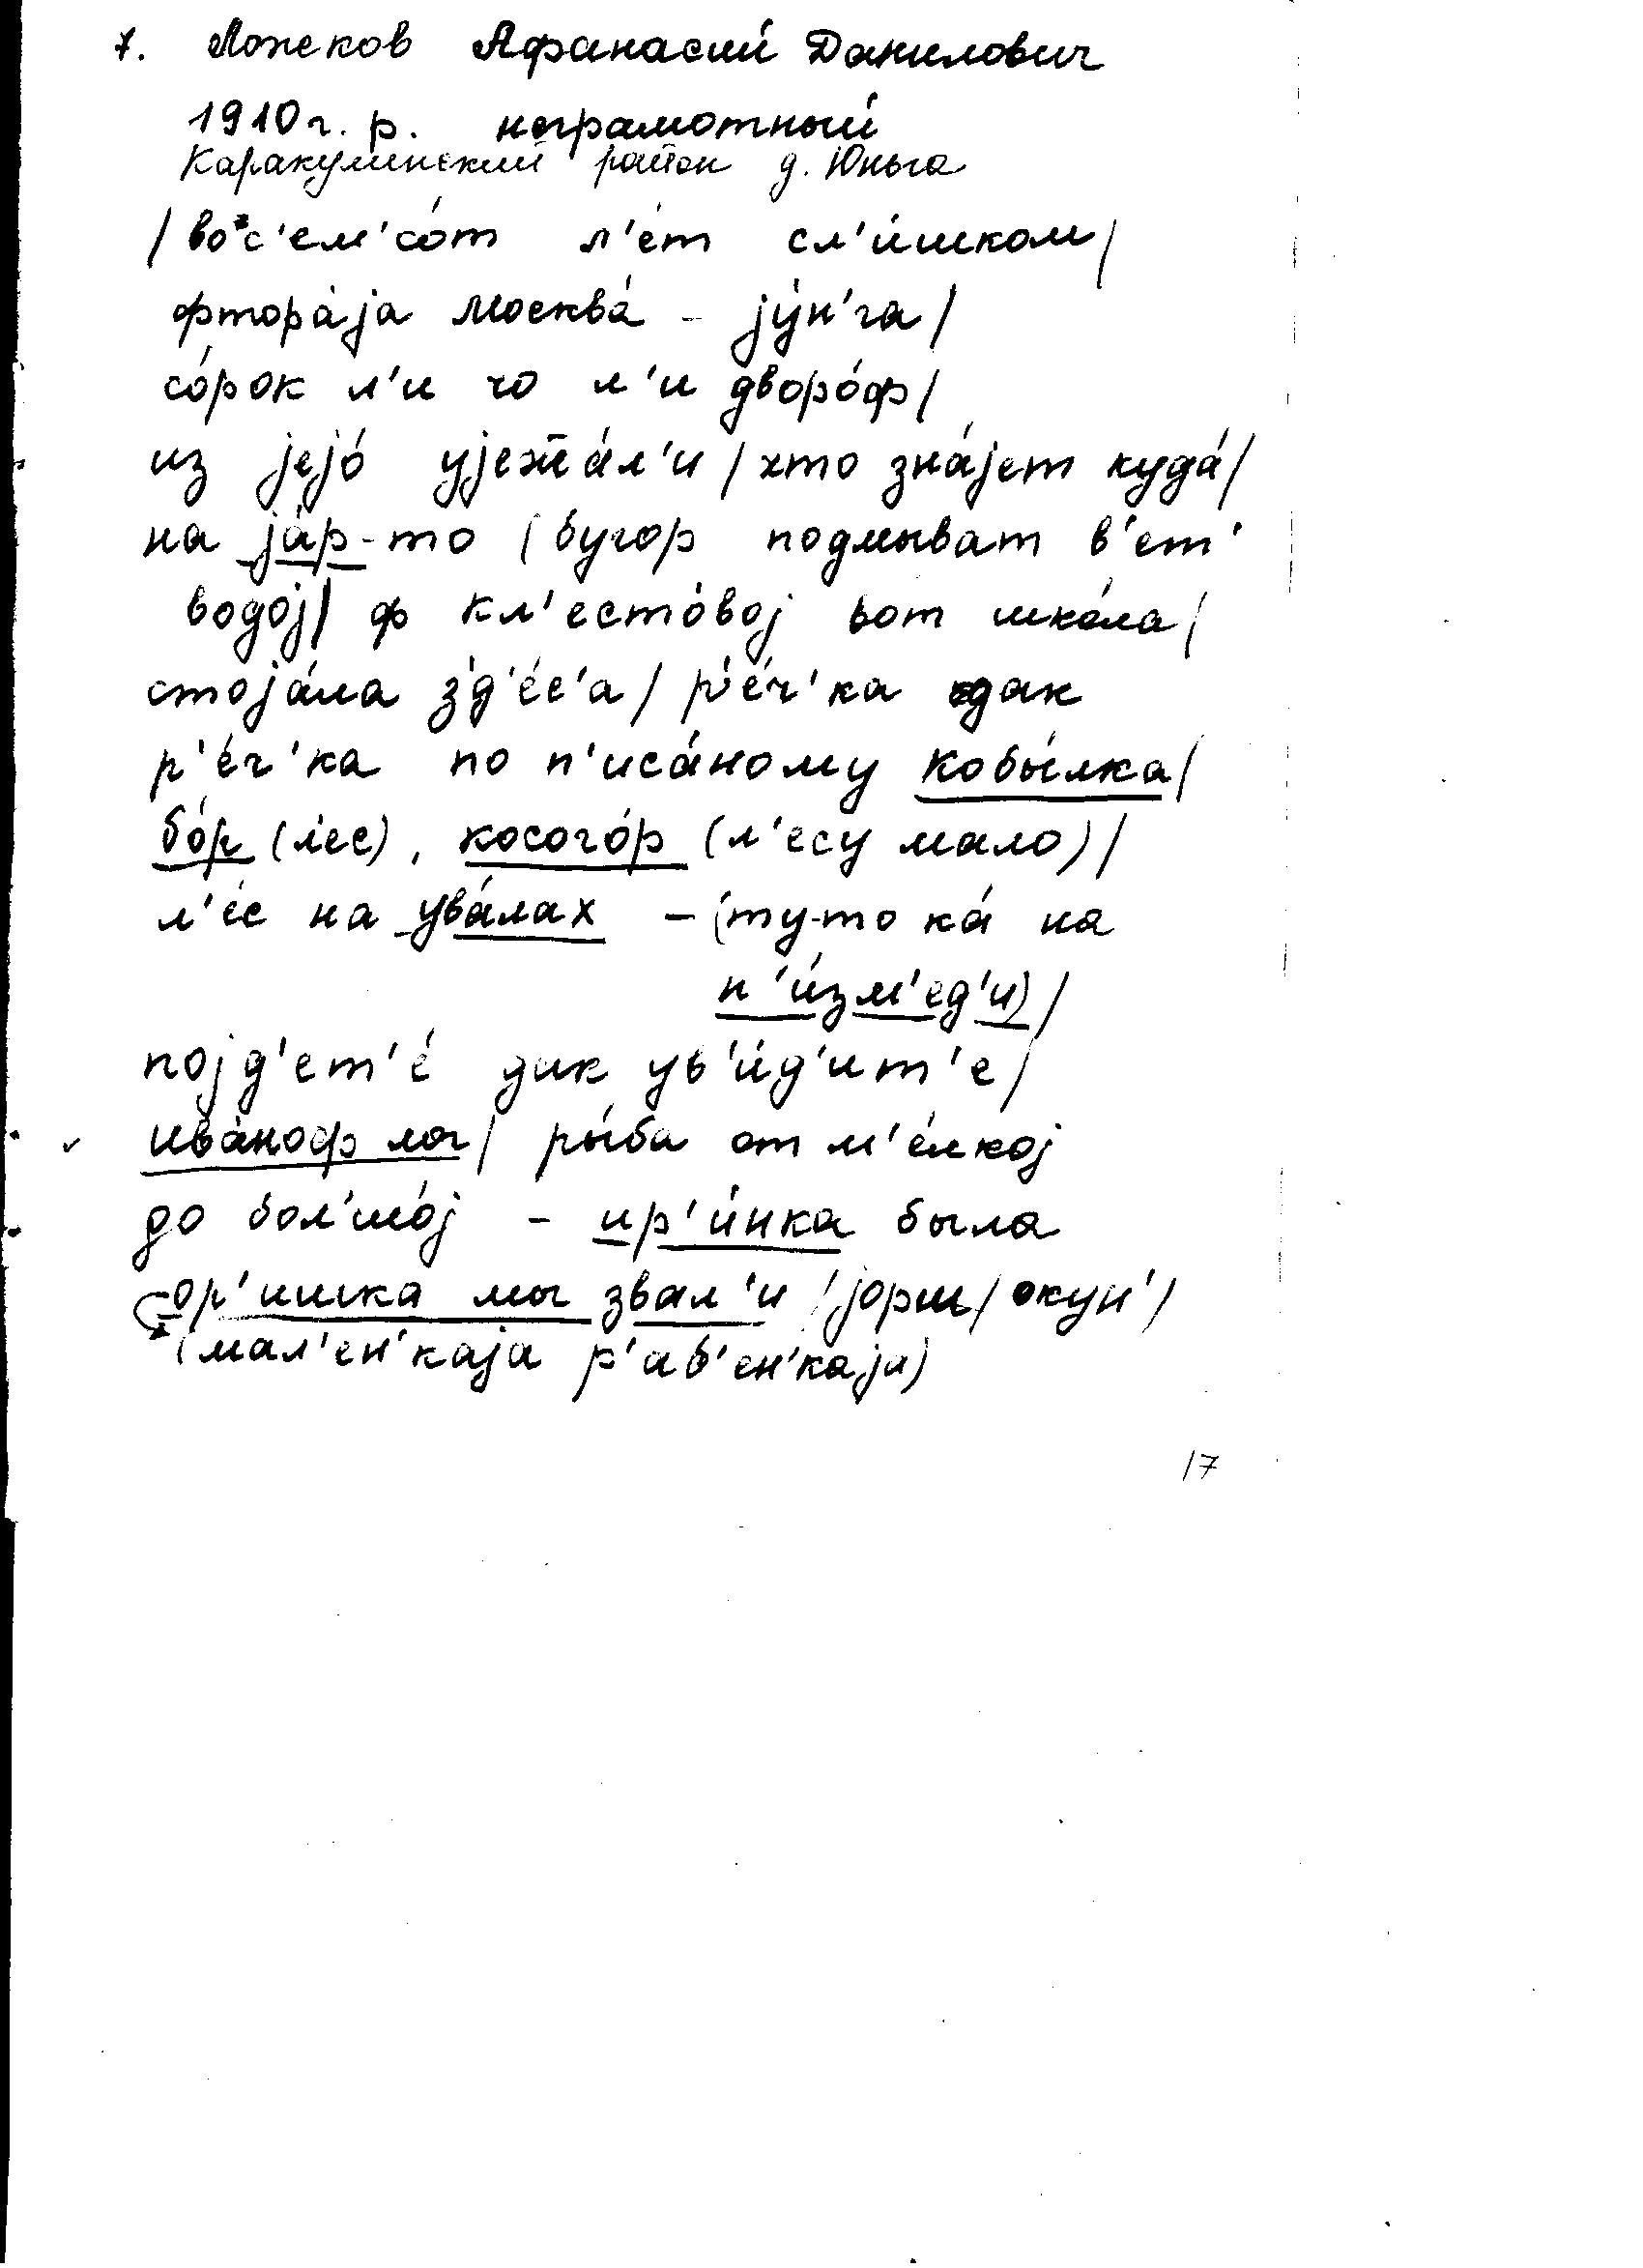 7. Ложеков Афанасий Данилович
1910 г. р. неграмотный
Каракулинский район д. Юньга
/ вос'ем'со́т л'е́т сл'и́шком /
фтора́jа Москва́ - jу́н'га /
со́рок л'и чо л'и дворо́ф /
из jеjо́ уjежа́л'и / хто зна́jет куда́ /
на jа́р-то / бугор подмыват в'ет'
водоj / ф кл'есто́воj вот шко́ла /
стоjа́ла з'д'е́с'а / р'е́ч'ка дак
р'е́ч'ка по п'иса́ному кобы́лка /
бо́р (л'ес), косого́р (л'есу мало) /
л'е́с на ува́лах – (ту-то ка́ на
н'и́зм'ед'и) /
поjд'ет'е́ дак ув'и́д'ит'е /
ива́ноф лог / ры́ба от м'е́лкоj
до бол'шо́j – ир'и́нка была
ор'ишка мы звал'и / jорш / окун' /
(мал'ен'каjа р'аб'ен'каjа)
17